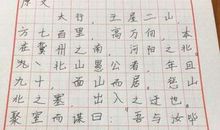 原文
太行，王屋二山
方七百里，高万仞，本
在冀州之南，河阳之北
北山愚公者，年且
九十，面山而居。惩山
北之塞，出入之迂也。
聚室而谋曰：吾与汝毕